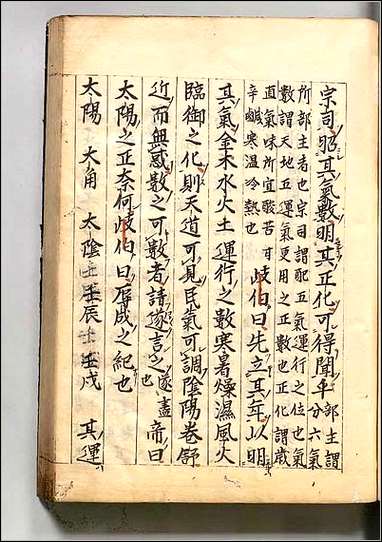 宗司昭其氣數明其正化可得聞乎部主謂分六氣
所部主者也宗司謂配五氣運行之位也氣
數謂天地五運氣更用之正數也正化謂歳
直氣味所宜酸苦甘
辛鹹寒温冷熱也
岐伯曰先立其年以明
其氣金木水火土運行之數寒暑燥濕風火
臨御之化則天道可見民氣可調陰陽卷舒
近而無惑數之可數者請遂言之遂盡也帝曰
太陽之正奈何岐伯曰辰戌之紀也
太陽 太角 太陰 壬辰 壬戌 其運